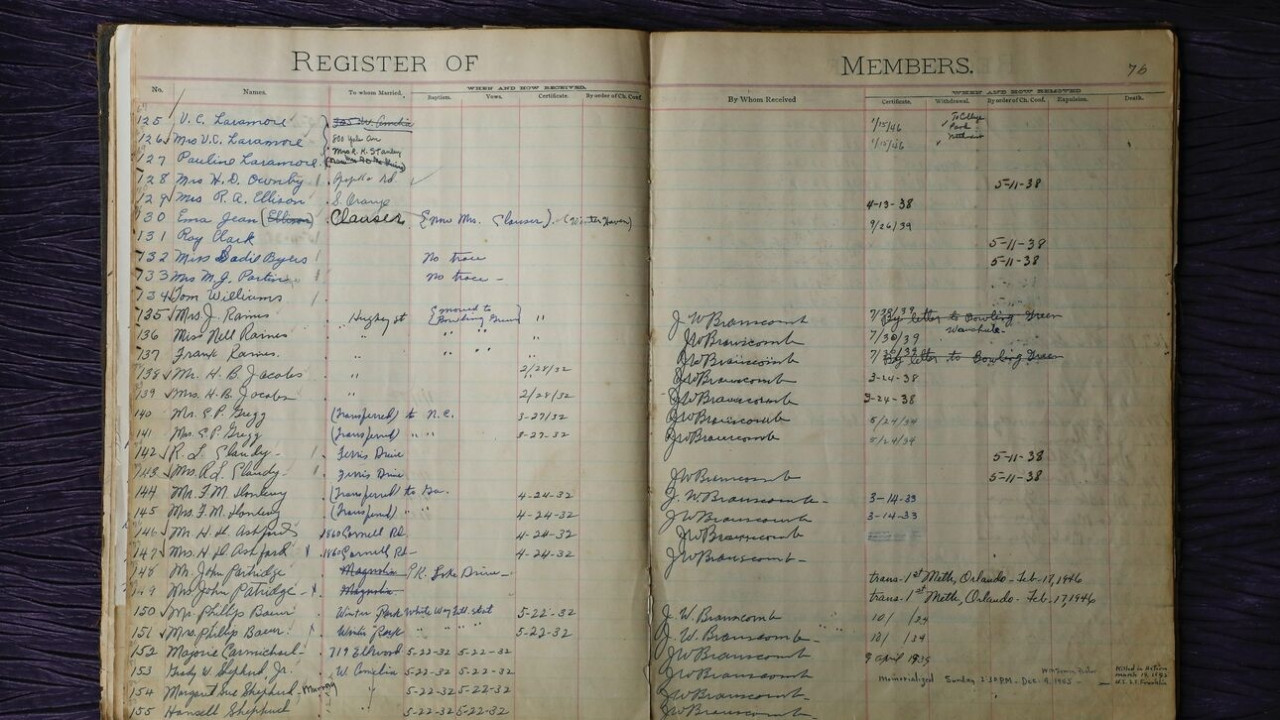 REGISTER OF MEMBERS. 76
WHEN AND HOW RECEIVED. WHEN AND HOW REMOVED
No. Names. To whom Married. Baptism. Vows. Certificate. By order of Ch. Conf. By Whom Received Certificate. Withdrawal. By order of Ch. Conf. Expulsion. Death.
125 V. C. Laramore W. Amelia 1/15/46 To College Park
126 Mrs V.C. Laramore 1/15/46
Mrs R. K. Stanley
127 Pauline Laramore
128 Mrs H. D. Ownby Apopka Rd 5-11-38
129 Mrs R. A. Ellison S. Orange 4-13-38
130 Erna Jean (Ellison) Clauser (Now Mrs. Clauser) (Winter Haven) 9/26/39
131 Roy Clark 5-11-38
132 Miss Sadie Byers No trace 5-11-38
133 Mrs M. J. Partin No trace -
134 Tom Williams
135 Mrs J. Raines Hughey st (moved to Bowling Green) " J. W Branscomb 7/30/39 By letter to Bowling Green
136 Miss Nell Raines " " " " JW Branscomb 7/30/39 Wauchula
137 Frank Raines " " " " JW Branscomb 7/30/39 By letter to Bowling Green
138 Mr. H. B Jacobs " 2/28/32 JW Branscomb 3-24-38
139 Mrs. H. B. Jacobs " 2/28/32 JW Branscomb 3-24-38
140 Mr. E. P. Gregg (Transferred) to N.C. 3-27/32 JW Branscomb 5/24/34
141 Mrs E. P. Gregg (Transferred) " " 3-27-32 JW Branscomb 5/24/34
142 R. L. Slandy Ferris Drive 5-11-38
143 Mrs R. L. Slandy Ferris Drive JW Branscomb 5-11-38
144 Mr. F. M. (Transferred) to Ga. 4-24-32 J. W Branscomb 3-14-33
145 Mrs. F. M. (Transferred) " " 4-24-32 JW Branscomb 3-14-33
146 Mr. H. H. Ashford 1860 Cornell Rd. 4-24-32 JW Branscomb
147 Mrs. H. H. Ashford 1860 Cornell Rd - 4-24-32 JW Branscomb
148 Mr. John Partridge Magnolia PR. Lake Drive trans. 1st Meth, Orlando - Feb. 17, 1946
149 Mrs John Patridge Magnolia trans. 1st Meth, Orlando - Feb. 17, 1946
150 Mr Phillip Bauer Winter Park 5-22-32 J. W. Branscomb 10/ /34
151 Mrs. Phillip Bauer Winter Park " " " 5-22-32 J. W. Branscomb 10/ /34
152 Marjorie Carmichael 719 Ellwood 5-22-32 5-22-32 JW Branscomb 9 April 1939
153 Grady V. Shepherd, Jr. W Amelia 5-22-32 5-22-32 JW Branscomb Memorialized Sunday 2:30 P.M. - Dec. 9, 1945 Killed in Action March 19, 1945 U.S.S. Franklin
154 Margaret Sue Shepherd - Murray " 5-22-32 5-22-32 JW Branscomb
155 Hansell Shepherd 5-22-32 5-22-32 JW Branscomb